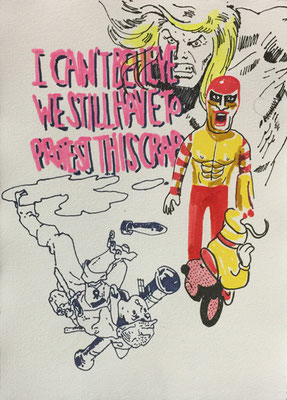 I CAN'T BELIEVE
WE STILL HAVE TO
PROTEST THIS CRAP